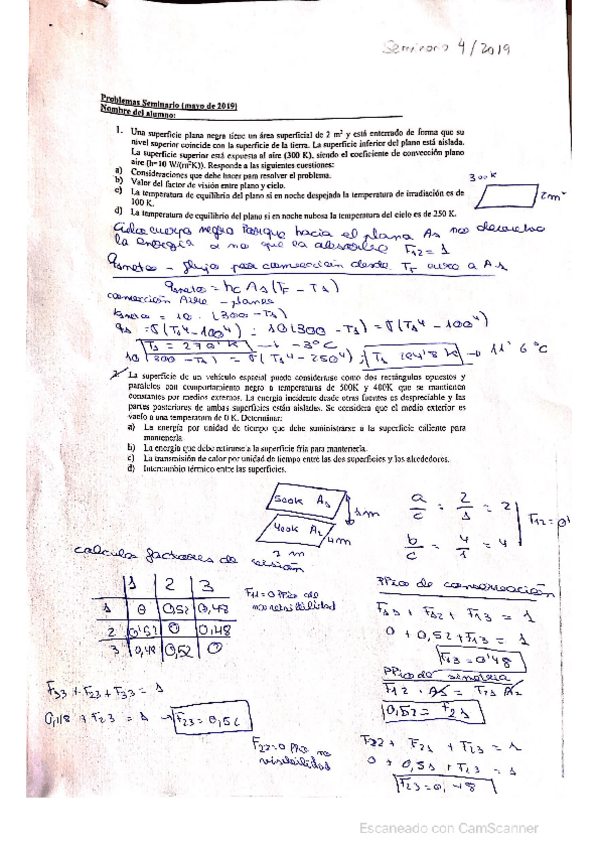 Seminario 4/2019
Problemas Seminario (mayo de 2019)
Nombre del alumno:
1. Una superficie plana negra tiene un área superficial de 2 m² y está enterrado de forma que su
nivel superior coincide con la superficie de la tierra. La superficie inferior del plano está aislada.
La superficie superior está expuesta al aire (300 K), siendo el coeficiente de convección plano
aire (h=10 W/(m²K)). Responde a las siguientes cuestiones:
a) Consideraciones que debe hacer para resolver el problema.
b) Valor del factor de visión entre plano y cielo.
c) La temperatura de equilibrio del plano si en noche despejada la temperatura de irradiación es de
100 K.
d) La temperatura de equilibrio del plano si en noche nubosa la temperatura del cielo es de 250 K.
300K
2m²
Cielo cuerpo negro porque hacia el plano As no devuelve
la energía a no que la absorbe F12 = 1
qsneto - flujo por convección desde TF aire a As
qsneto = hc As (TF - Ts)
convección Aire - planos
= 10 · (300 - Ts)
qs = σ(Ts⁴ - 100⁴) ; 10(300 - Ts) = σ(Ts⁴ - 100⁴)
Ts = 270 K → -3°C
10(300 - Ts) = σ(Ts⁴ - 250⁴) ; → 11'6 °C
2. La superficie de un vehículo espacial puede considerarse como dos rectángulos opuestos y
paralelos con comportamiento negro a temperaturas de 500K y 400K que se mantienen
constantes por medios externos. La energía incidente desde otras fuentes es despreciable y las
partes posteriores de ambas superficies están aisladas. Se considera que el medio exterior es
vacío a una temperatura de 0 K. Determina:
a) La energía por unidad de tiempo que debe suministrarse a la superficie caliente para
mantenerla.
b) La energía que debe retirarse a la superficie fría para mantenerla.
c) La transmisión de calor por unidad de tiempo entre las dos superficies y los alrededores.
d) Intercambio térmico entre las superficies.
500K A1
400K A2
1m
4m
2 m
a/c = 2/1 = 2
b/c = 4/1 = 4
F12 = 0'
calculos factores de visión
1 2 3
1 0 0,52 0,48
2 0'52 0 0,48
3 0,48 0,52 0
F11 = 0 Ppio de
no visibilidad
PPio de conservación
F11 + F12 + F13 = 1
0 + 0,52 + F13 = 1
F13 = 0'48
F12 · A1 = F21 A2
0,52 = F21
F33 + F23 + F33 = 1
0,48 + F23 = 1 → F23 = 0,52
F22 = 0 Ppio no
visibilidad
F22 + F21 + F23 = 1
0 + 0,52 + F23 = 1
F23 = 0,48
Escaneado con CamScanner